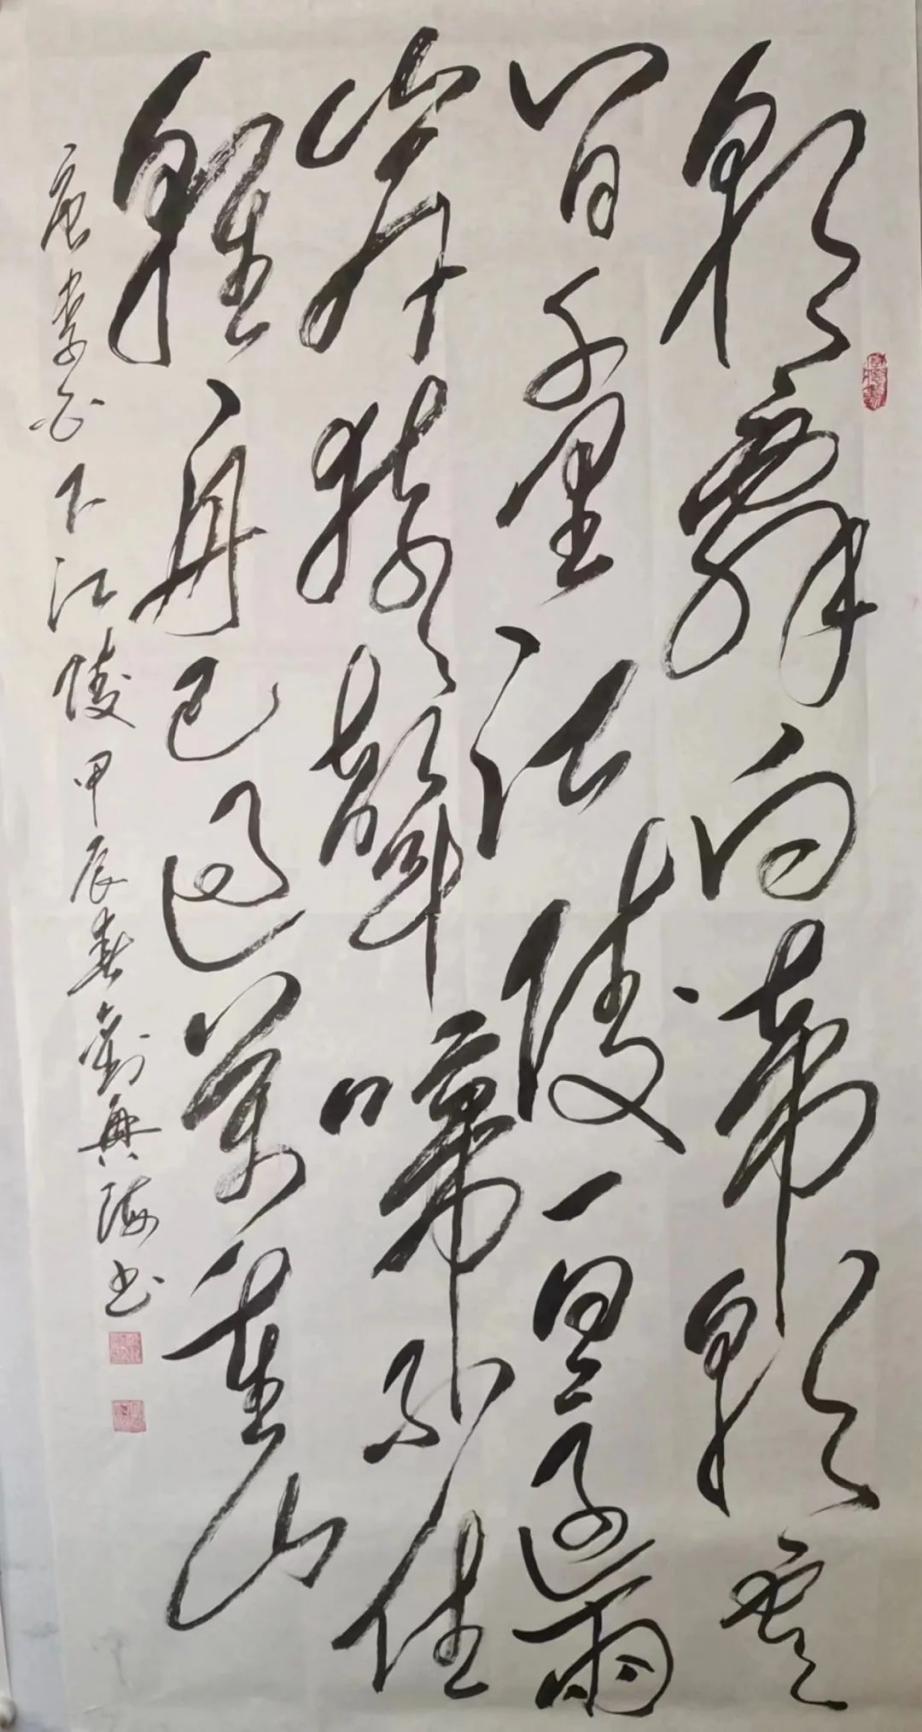 朝辭白帝彩雲
間千里江陵一日還兩
岸猿聲啼不住
輕舟已過萬重山
唐李白下江陵甲辰春劉興海書